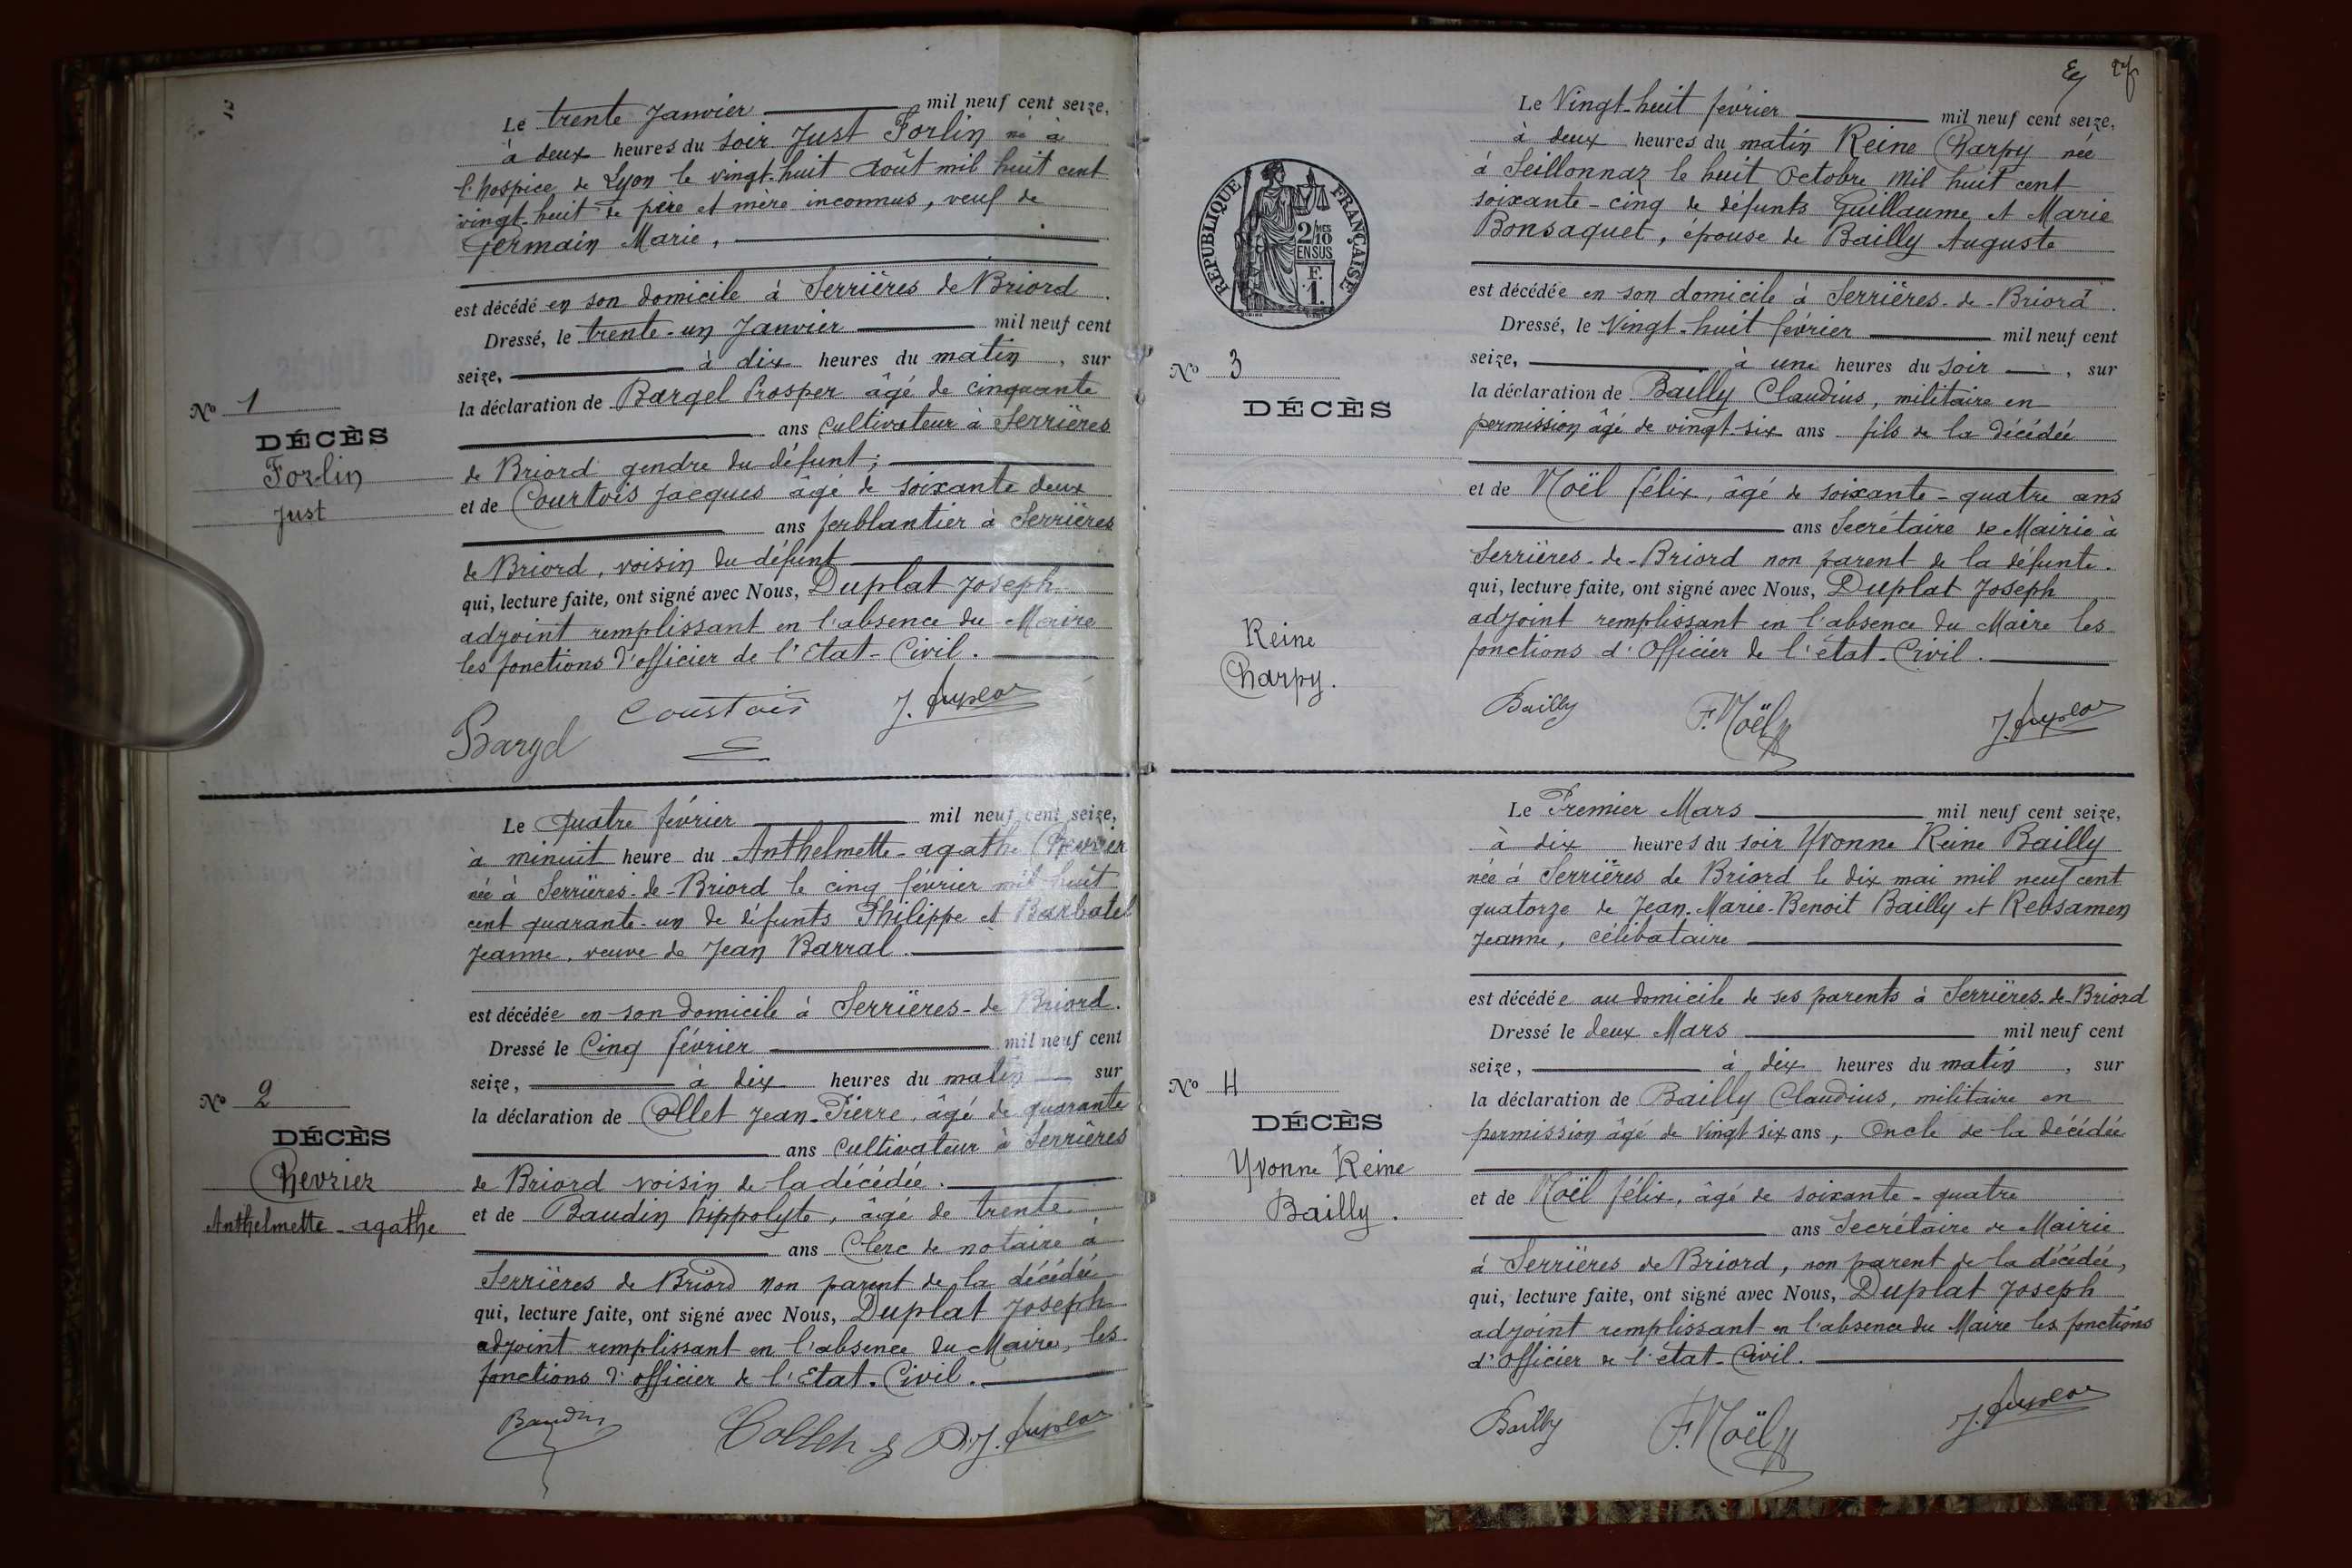 Le trente Janvier mil neuf cent seize,
à deux heures du soir Just Forlin né à
l'hospice de Lyon le vingt-huit Août mil huit cent
vingt-huit de père et mère inconnus, veuf de
Germain Marie,
est décédé en son domicile à Serrières de Briord.
Dressé, le trente-un Janvier mil neuf cent
seize, à dix heures du matin, sur
la déclaration de Bargel Prosper âgé de cinquante
ans cultivateur à Serrières
de Briord gendre du défunt;
et de Courtois Jacques âgé de soixante deux
ans ferblantier à Serrières
de Briord, voisin du défunt
qui, lecture faite, ont signé avec Nous, Duplat Joseph
adjoint remplissant en l'absence du Maire
les fonctions d'officier de l'Etat-Civil.
Bargel Courtois J. Duplat
No 1
DÉCÈS
Forlin
Just
Le quatre février mil neuf cent seize,
à minuit heure du Anthelmette-agathe Chevrier
née à Serrières-de-Briord le cinq février mil huit
cent quarante-un de défunts Philippe et Barbatel
Jeanne, veuve de Jean Barral.
est décédée en son domicile à Serrières-de Briord.
Dressé le Cinq février mil neuf cent
seize, à dix heures du matin, sur
la déclaration de Collet Jean-Pierre, âgé de quarante
ans cultivateur à Serrières
de Briord voisin de la décédée.
et de Baudin hippolyte, âgé de trente
ans Clerc de notaire à
Serrières de Briord non parent de la décédée
qui, lecture faite, ont signé avec Nous, Duplat Joseph
adjoint remplissant en l'absence du Maire, les
fonctions d'officier de l'Etat-Civil.
Baudin Collet J. Duplat
No 2
DÉCÈS
Chevrier
Anthelmette-agathe
Le Vingt-huit février mil neuf cent seize,
à deux heures du matin Reine Charpy née
à Seillonnaz le huit Octobre mil huit cent
soixante-cinq de défunts Guillaume et Marie
Bonsaquet, épouse de Bailly Auguste
est décédée en son domicile à Serrières-de-Briord.
Dressé, le Vingt-huit février mil neuf cent
seize, à une heures du soir, sur
la déclaration de Bailly Claudius, militaire en
permission âgé de vingt-six ans fils de la décédée
et de Noël félix, âgé de soixante-quatre ans
ans Secrétaire de Mairie à
Serrières-de-Briord non parent de la défunte.
qui, lecture faite, ont signé avec Nous, Duplat Joseph
adjoint remplissant en l'absence du Maire les
fonctions d'Officier de l'état-Civil.
Bailly F. Noël J. Duplat
RÉPUBLIQUE FRANÇAISE
2/10
EN SUS
F.
1.
No 3
DÉCÈS
Reine
Charpy.
Le Premier Mars mil neuf cent seize,
à dix heures du soir Yvonne Reine Bailly
née à Serrières de Briord le dix mai mil neuf cent
quatorze de Jean-Marie-Benoit Bailly et Rebsamen
Jeanne, célibataire
est décédée au domicile de ses parents à Serrières-de-Briord
Dressé le deux Mars mil neuf cent
seize, à dix heures du matin, sur
la déclaration de Bailly Claudius, militaire en
permission âgé de vingt six ans, Oncle de la décédée
et de Noël félix, âgé de soixante-quatre
ans Secrétaire de Mairie
à Serrières de Briord, non parent de la décédée,
qui, lecture faite, ont signé avec Nous, Duplat Joseph
adjoint remplissant en l'absence du Maire les fonctions
d'Officier de l'état-Civil.
Bailly F. Noël J. Duplat
No 4
DÉCÈS
Yvonne Reine
Bailly.